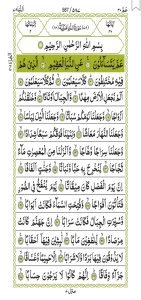 بِسْمِ اللَّهِ الرَّحْمَٰنِ الرَّحِيمِ
عَمَّ يَتَسَاءَلُونَ عَنِ النَّبَإِ الْعَظِيمِ الَّذِي هُمْ
فِيهِ مُخْتَلِفُونَ كَلَّا سَيَعْلَمُونَ ثُمَّ كَلَّا سَيَعْلَمُونَ
أَلَمْ نَجْعَلِ الْأَرْضَ مِهَادًا وَالْجِبَالَ أَوْتَادًا وَخَلَقْنَاكُمْ
أَزْوَاجًا وَجَعَلْنَا نَوْمَكُمْ سُبَاتًا وَجَعَلْنَا اللَّيْلَ لِبَاسًا
وَجَعَلْنَا النَّهَارَ مَعَاشًا وَبَنَيْنَا فَوْقَكُمْ سَبْعًا شِدَادًا
وَجَعَلْنَا سِرَاجًا وَهَّاجًا وَأَنْزَلْنَا مِنَ الْمُعْصِرَاتِ مَاءً
ثَجَّاجًا لِنُخْرِجَ بِهِ حَبًّا وَنَبَاتًا وَجَنَّاتٍ أَلْفَافًا
إِنَّ يَوْمَ الْفَصْلِ كَانَ مِيقَاتًا يَوْمَ يُنْفَخُ فِي الصُّورِ
فَتَأْتُونَ أَفْوَاجًا وَفُتِحَتِ السَّمَاءُ فَكَانَتْ أَبْوَابًا
وَسُيِّرَتِ الْجِبَالُ فَكَانَتْ سَرَابًا إِنَّ جَهَنَّمَ كَانَتْ
مِرْصَادًا لِلطَّاغِينَ مَآبًا لَابِثِينَ فِيهَا أَحْقَابًا
لَا يَذُوقُونَ فِيهَا بَرْدًا وَلَا شَرَابًا إِلَّا حَمِيمًا وَغَسَّاقًا
جَزَاءً وِفَاقًا إِنَّهُمْ كَانُوا لَا يَرْجُونَ حِسَابًا